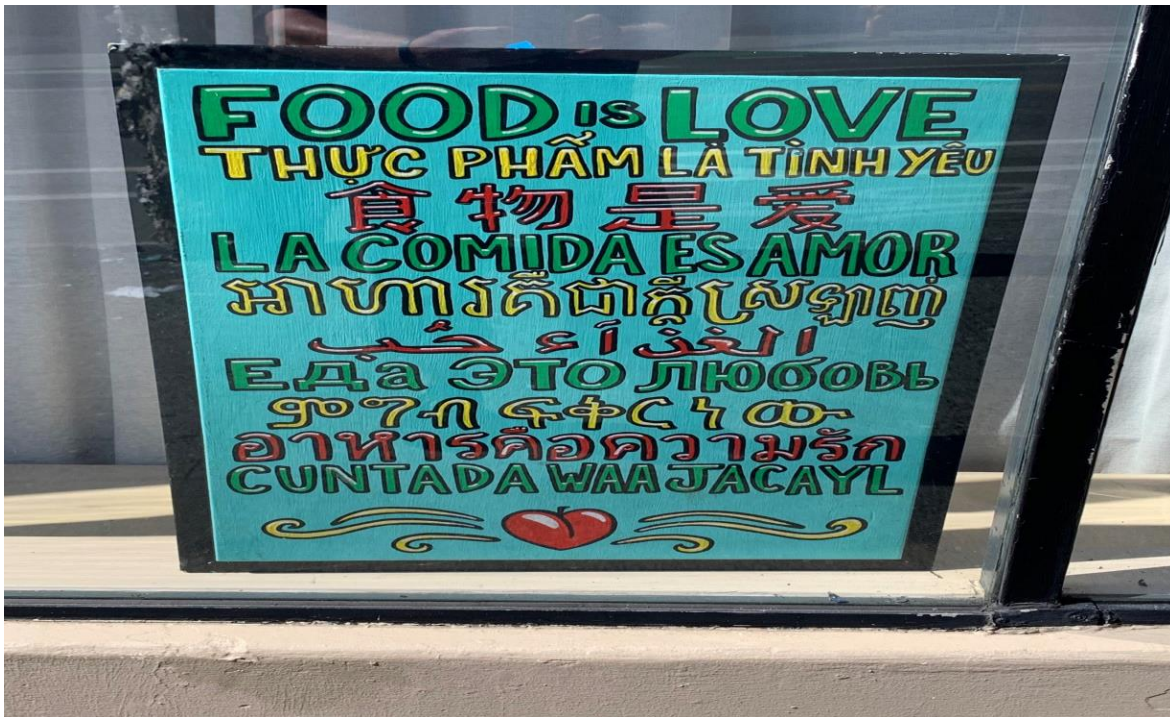 FOOD IS LOVE
THỰC PHẨM LÀ TÌNH YÊU
食物是爱
LA COMIDA ES AMOR
អាហារគឺជាក្តីស្រឡាញ់
الغذآء حُب
Еда ЭТО ЛЮбОВЬ
ምግብ ፍቅር ነው
อาหารคือความรัก
CUNTADA WAA JACAYL